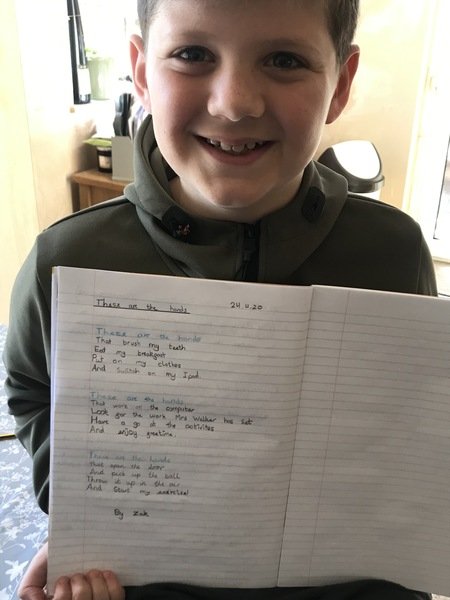 These are the hands 24.4.20
These are the hands
That brush my teeth
Eat my breakfast
Put on my clothes
And Switch on my Ipad.
These are the hands
That work on the computer
Look for the work Mrs Walker has set
Have a go at the activites
And enjoy
These are the hands
that open the door
And pick up the ball
Throw it up in the air
And Start my exercise!
By Zak